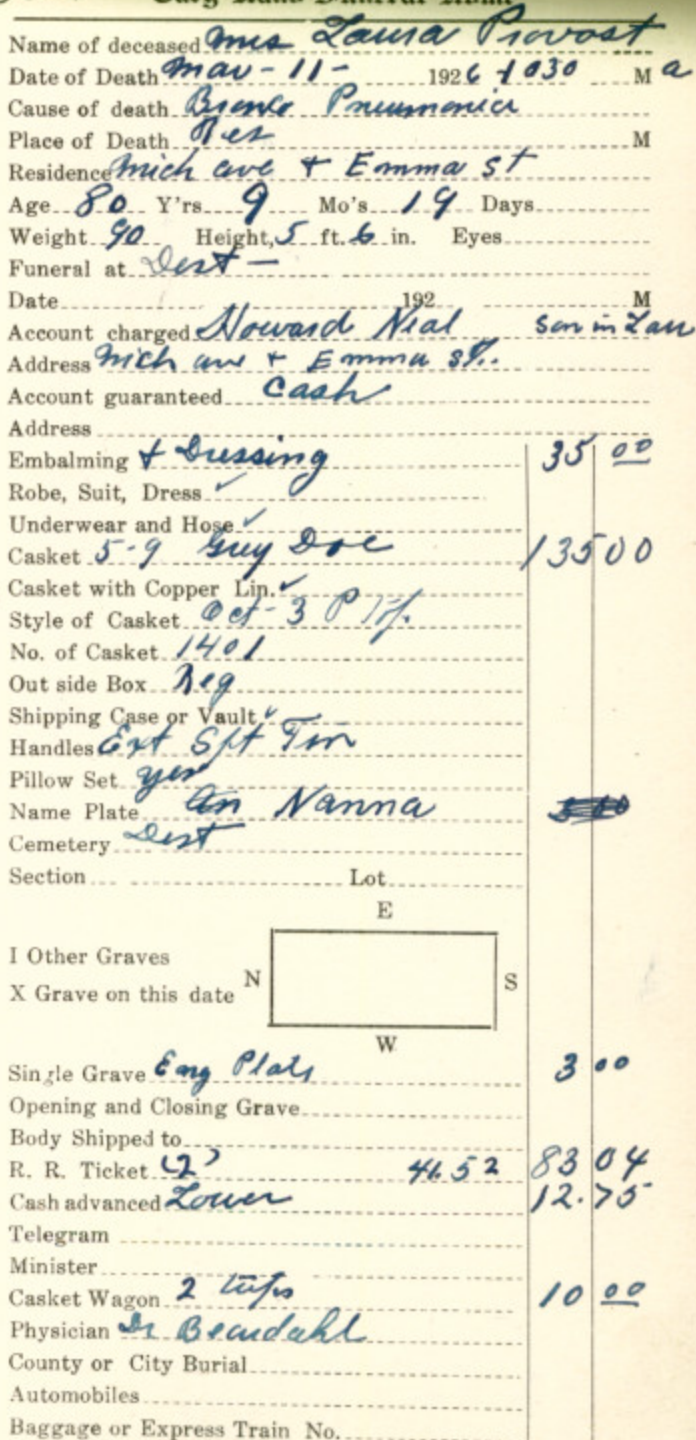 Name of deceased Mrs Laura Provost
Date of Death Mar - 11 - 1926 + 1030 M a
Cause of death Bronko Pneumonia
Place of Death Res M
Residence Mich ave + Emma St
Age 80 Y'rs 9 Mo's 19 Days
Weight 90 Height, 5 ft. 6 in. Eyes
Funeral at Dest -
Date 192 M
Account charged Howard Neal Son in Law
Address Mich ave + Emma St.
Account guaranteed Cash
Address
Embalming + Dressing 35 00
Robe, Suit, Dress ✓
Underwear and Hose ✓
Casket 5-9 Grey Doe 135 00
Casket with Copper Lin. ✓
Style of Casket Oct - 3 P
No. of Casket 1401
Out side Box Reg
Shipping Case or Vault ✓
Handles Ext Tin
Pillow Set yes
Name Plate an Nanna
Cemetery Dest
Section Lot
E
I Other Graves
N S
X Grave on this date
W
Single Grave Eng Plate 3 00
Opening and Closing Grave
Body Shipped to
R. R. Ticket (2) 41.52 83 04
Cash advanced Lower 12.75
Telegram
Minister
Casket Wagon 2 trips 10 00
Physician Dr Beardahl
County or City Burial
Automobiles
Baggage or Express Train No.